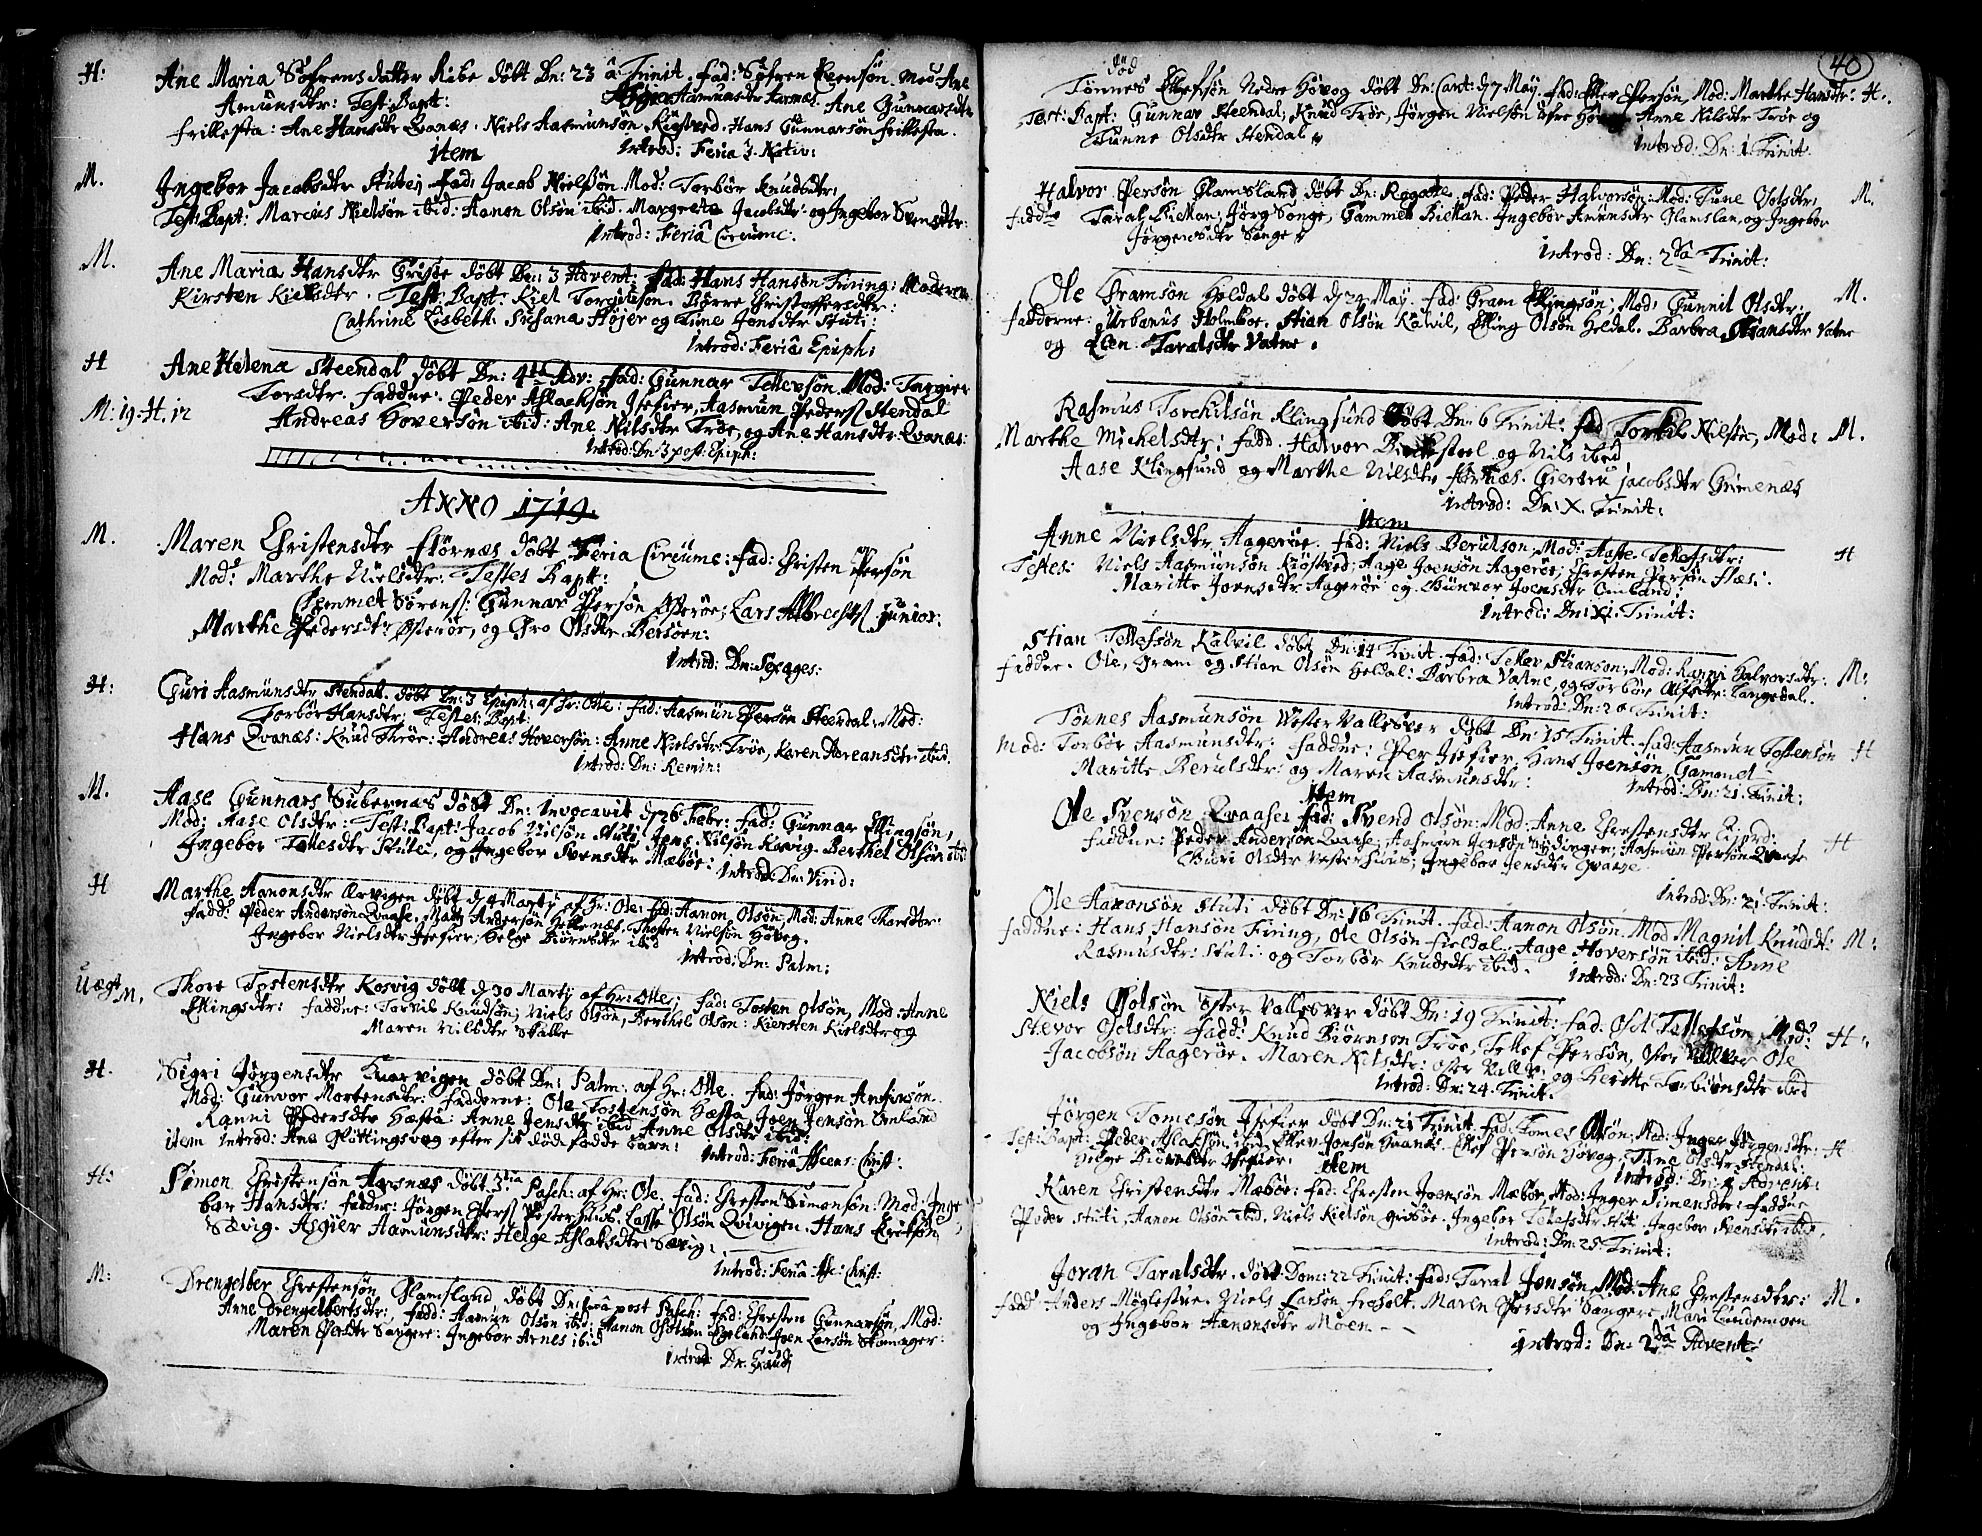 H: Ane Maria Søfrensdatter Ribe døbt Dn: 23 â Trinit. fad: Søfren Mod: Ane
Amunsdtr: Test: Bapt: Aasmunsdtr Aarnæs. Ane Gunnarsdtr
frillesta: Ane Hansdtr Qvanæs. Niels Aasmunsøn Kiøstved. Hans Gunnarsøn frillesta.
Introd: Feria 3. Nativ:
Item
M. Ingebor Jacobsdtr Stutej fad: Jacob Nielsøn Mod: Torbør Knudsdtr:
Test: Bapt: Marcus Nielsøn ibid: Aanon Olsøn ibid. Margrete Jacobsdtr: og Ingebor Svensdtr:
Introd: Feriâ Circumc:
M. Ane Maria Hansdtr døbt Dn: 3 Advent: fad: Hans Hansøn Fixing: Moderen
Kirsten Kielsdtr. Test: Bapt: Kiel Torgilsøn. Børre Christoffersdtr:
Cathrine Lisbeth. Susana Høier og Tune Jonsdtr Stuti:
Introd: Feriâ Epiph:
H Ane Helena Steendal døbt Dn: 4ta Adv: fad: Gunnar Tellevsøn Mod: Taggier
Torsdtr. faddne: Peder Aslacksøn Isefier, Aasmun Peders: Stendal
M: 19: H. 12 Andreas Hoversøn ibid: Ane Nilsdtr Trøe, og Ane Hansdtr Qvanæs:
Introd: Dn: 3 post: Epiph:
ANNO 1719.
M. Maren Christensdtr Størnæs døbt Feria Circumc: fad: Christen Persøn
Mod: Marthe Nielsdtr: Testes Bapt:
Chemmet Sørens: Gunnar Persøn Østerøe; Lars Albrechts: Junior:
Marthe Pedersdtr: Østerøe, og Gro Olsdtr Bersøen:
Introd: Dn: Sexages:
H: Guri Aasmunsdtr Stendal. døbt Dn: 3 Epiph: af Hr: Otte: fad: Aasmun Persøn Steerdal. Mod:
Torbør Hansdtr: Testes: Bapt:
Hans Qvanæs: Knud Thrøe: Andreas Hoversøn: Anne Nielsdtr: Trøe, Karen Adreansdtr ibid.
Introd: Dn: Remin:
M. Aase Gunnars Subernæs døbt Dn: Invocavit d. 26 Febr: fad: Gunnar Ellingsøn;
Mod: Aase Olsdtr: Test: Bapt: Jacob Nilsøn Stuti Jens: Nilsøn Kosvig. Berthel Olsøn ibi
Ingebor Tellesdtr Stutei, og Ingebor Svensdtr Mæbøe: Introd: Dn: Virid:
H Marthe Aanonsdtr Ørvigen døbt d. 4 Martij af Hr: Ole: fad: Aanon Olsøn, Mod: Anne Thorsdtr:
Fadd: Peder Andersøn Qvaase, Mads Andersøn Hellenæs. Thosten Nielsøn Høvog.
Ingebor Nielsdtr Isefier; Helge Biørnsdtr ibid
Introd: Dn: Palm:
Uægt M, Thore Tostensdtr Kosvig døbt d. 30 Martij af Hr: Otte; fad: Tosten Olsøn, Mod: Anne
Ellingsdtr: faddne: Torkil Knudsøn; Niels Olsøn, Berthel Olsøn: Kiersten Kielsdtr og
Maren Nilsdtr Skalle
H. Sigri Jørgensdtr Kuarvigen døbt Dn: Palm: af Hr: Otte. fad: Jørgen Anfinsøn.
Mod: Gunvor Mortensdtr: fadderne: Ole Tostensøn Hæsta Joen Jensøn Omland
Ranni Pedersdtr Hæsta: Anne Jensdtr ibid Anne Olsdtr ibid:
item Introd: Ane Gløttingsvog efter sit død fødde barn: Introd: Feriâ Ascens: Christ:
H: Simon Christensøn Aarsnæs døbt 3tia Pasch: af Hr: Ole. fad: Christen Simonsøn: Mod: Inge
bor Hansdtr: faddne: Jørgen Pers: Vesterhuus. Lasse Olsøn Qvivigen. Hans Erichsøn
Sævig. Asgier Aamunsdtr: Helge Aslaksdtr Sævig:
Introd: Feriâ Asc: Christ:
M: Drengelber Christensøn Glamsland døbt Dn: 1mâ post Pasch: fad: Christen Gunnarsøn, Mod:
Anne Drengelbertsdtr; fadd: Aamun Olsøn ibid: Aanon Osolsøn Joen Larsøn Skomager:
Maren Persdtr Sangere: Ingebor Arnes ibid
Introd: Dn: Exaudi
40
død
Tønnes Ellefsøn Nedre Høvog døbt Dn: Cant: d. 7 May. fad: Ellef Persøn, Mod: Marthe Hansdtr: H.
Test: Bapt: Gunnar Steendal; Knud Trøe, Jørgen Nielsøn Øfre Anne Nilsdtr Trøe og
Tunne Olsdtr Stendal
Introd: Dn: 1. Trinit.
Halvor Persøn Glamsland døbt Dn: Rogatte. fad: Peder Halvorsøn: Mod: Tune Osolsdtr; M.
fadd: Taral Birkan; Jørg Songe; Gammel Birkan. Ingebor Amunsdtr Glamslan, og Ingebor
Jørgensdtr Songe
Introd: Dn: 2dâ Trinit:
Ole Gramsøn Heldal døbt d. 24 May. fad: Gram Ellingsøn; Mod: Gunnil Olsdtr; M.
fadderne: Urbanus Holmboe. Stian Olsøn Kalvil, Elling Olsøn Heldal. Barbra Stiansdtr Vatne
og Elen Taralsdtr Vatne.
Rasmus Torchilsøn Klingsund døbt Dn: 6 Trinit: fad Torkil Nilsøn, Mod: M.
Marthe Michelsdtr; fadd. Halvor Birkesteel og Nils ibid
Aase Klingsund og Marthe Nilsdtr Giertru Jacobsdtr Grimenæs
Introd: Dn: X. Trinit:
Item
Anne Nielsdtr Aagerøe. fad: Niels Berulson, Mod: Aaste Tellefsdtr: H
Testes: Niels Aasmunsøn Kiøstved; Aage Joensøn Aagerøe; Christen Persøn Flæs:
Maritte Joensdtr: Aagerøe og Gunvor Joensdtr Omland:
Introd: Dn: XI. Trinit:
Stian Tellefsøn Kalvil døbt Dn: 14 Trinit. fad: Tellev Stianson; Mod: Ranni Halvorsdtr: M:
faddne. Ole, Gram og Stian Olsøn Heldal: Barbra Vatne, og Torbør Alfsdtr: Langedal.
Introd: Dn: 20 Trinit:
Tønnes Aasmunsøn Wester Vallesver døbt Dn: 15 Trinit. fad: Aasmun Tostensøn H
Mod: Torbør Aasmunsdtr: faddne: Per Isefier, Hans Joensøn Gamonel
Maritte Berulsdtr: og Maren Aasmunsdtr:
Introd: Dn: 21 Trinit:
Item
Ole Svensøn Qvaase: fad: Svend Olsøn: Mod: Anne Christensdtr H
faddne: Peder Andersøn Qvaase; Aasmun Jensøn Aasmun Persøn Qvaase
Guri Olsdtr Vesterhuus; Ingebor Jensdtr Qvaase.
Introd: Dn: 21. Trinit:
Ole Aanonsøn Stuti døbt Dn: 16 Trinit. fad: Aanon Olsøn. Mod Magnil Knudsdt: M:
faddne: Hans Hansøn Fixing, Ole Olsøn fieldal. Aage Hoversøn ibid: Anne
Rasmusdtr: Stuti: og Torbør Knudsdtr ibid.
Introd: Dn: 23 Trinit:
Niels Osolsøn Øster Vallesver døbt Dn: 19 Trinit: fad: Osol Tellefsøn Mod: H:
Stevor Osolsdtr: fadd: Knud Biørnsøn Trøe, Tellef Persøn, Øster Ole
Jacobsøn Aagerøe. Maren Nilsdtr: Øster og Berette Torbiørnsdtr ibid
Introd: Dn: 24. Trinit.
Jørgen Tomesøn Isefier døbt Dn: 21 Trinit. fad: Tomes Olsøn; Mod: Inger Jørgensdtr: H
Test: Bapt: Peder Aslaksøn ibid. Ellev Jonsøn Qvanæs. Ellef Persøn Høvog; Tine Olsdtr Stendal:
Helge Biørnsdtr Isefier:
Introd: Dn: Advent:
Item
Karen Christensdtr Mæbøe: fad: Christen Joensøn Mæbøe. Mod: Inger Simensdtr: faddne
Peder Stuti, Aanon Olsøn ibid. Niels Kielsøn Ingebor Tellefsdtr Stuti: Ingebor Svensdtr ibid.
Introd: Dn: 25. Trinit:
Joran Taralsdtr. døbt Dom: 22 Trinit: fad: Taral Jonsøn, Mod: Ane Christensdtr: M.
fadd: Anders Møglestve. Niels Larsøn Maren Persdtr Sangere, Mari Lundemoen
og Ingebor Aanonsdtr Moen
Introd: Dn. 2dâ Advent: